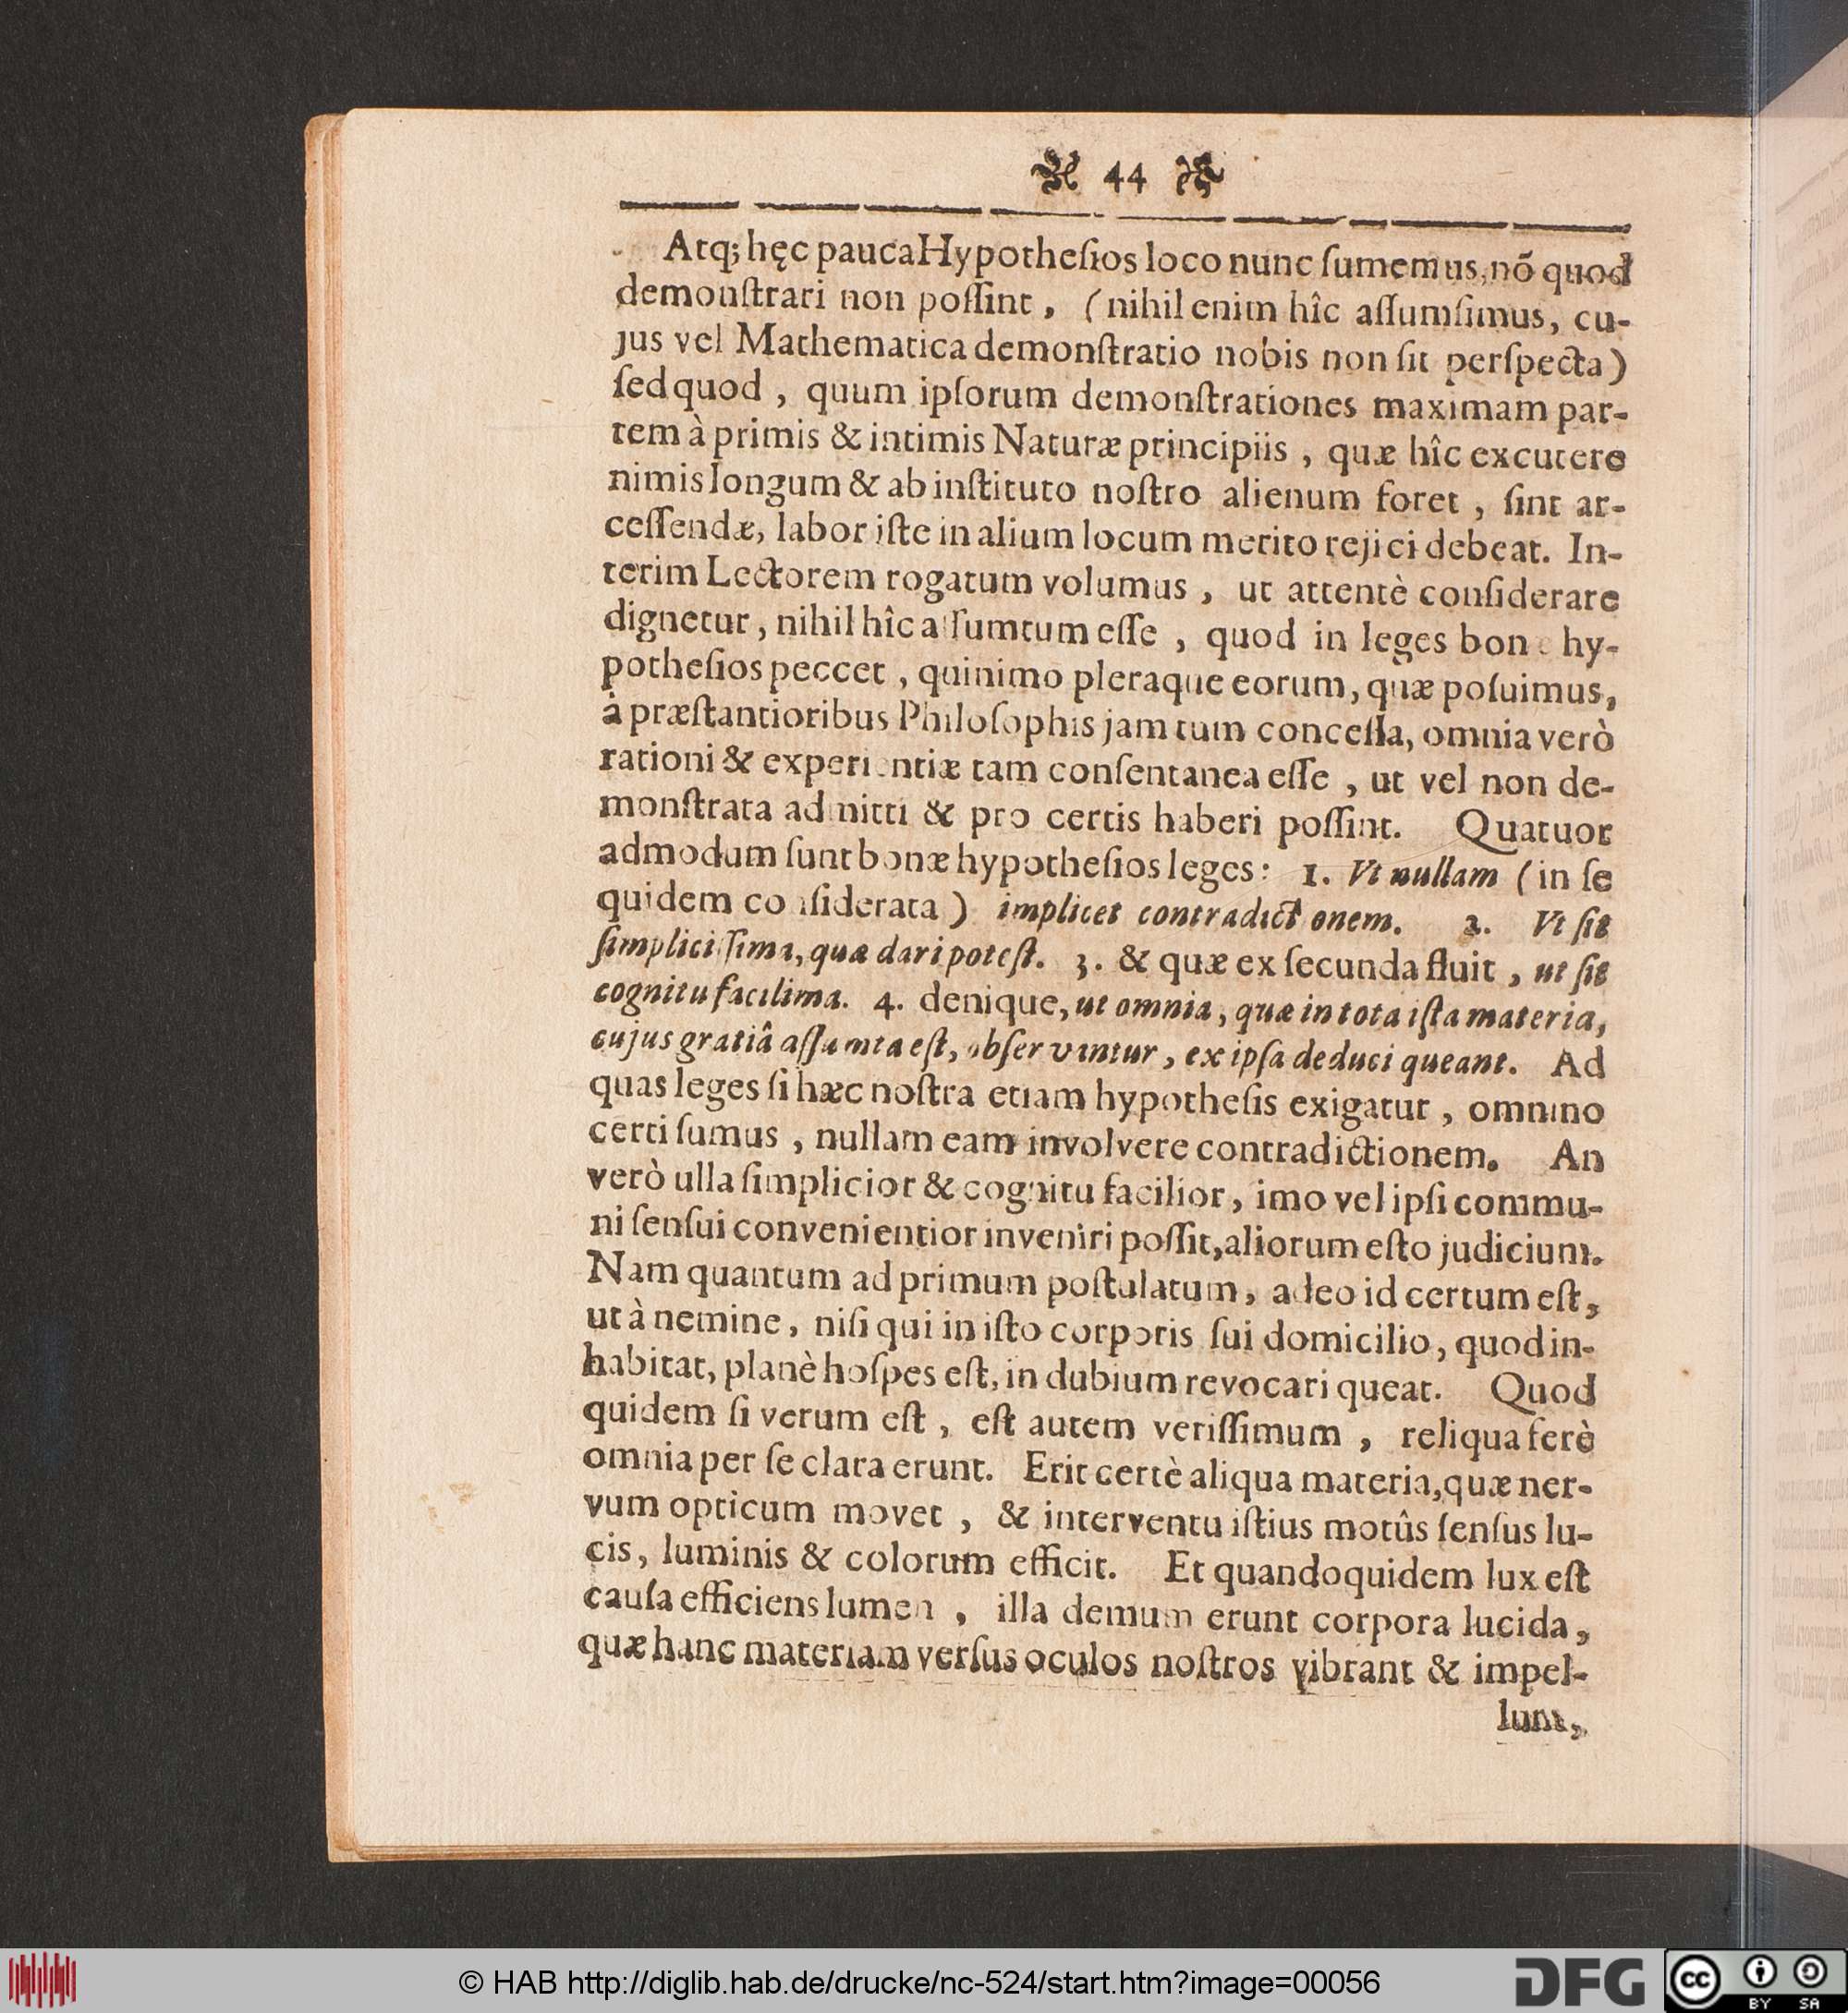 44
Atq; hęc pauca Hypotheſios loco nunc ſumemus, nõ quod
demonſtrari non poſſint, (nihil enim hîc aſſumſimus, cu-
jus vel Mathematica demonſtratio nobis non ſit perſpecta)
ſed quod, quum ipſorum demonſtrationes maximam par-
tem à primis & intimis Naturæ principiis, quæ hîc excutere
nimis longum & ab inſtituto noſtro alienum foret, ſint ar-
ceſſendæ, labor iſte in alium locum merito rejici debeat. In-
terim Lectorem rogatum volumus, ut attentè conſiderare
dignetur, nihil hîc aſſumtum eſſe, quod in leges bonę hy-
potheſios peccet, quinimo pleraque eorum, quæ poſuimus,
à præſtantioribus Philoſophis jam tum conceſſa, omnia verò
rationi & experientiæ tam conſentanea eſſe, ut vel non de-
monſtrata admitti & pro certis haberi poſſint. Quatuor
admodum ſunt bonæ hypotheſios leges: 1. Vt nullam (in ſe
quidem conſiderata) implicet contradictionem. 2. Vt ſit
ſimpliciſſima, quæ dari poteſt. 3. & quæ ex ſecunda fluit, ut ſit
cognitu facilima. 4. denique, ut omnia, quæ in tota iſta materia,
cujus gratiâ aſſumta eſt, obſervantur, ex ipſa deduci queant. Ad
quas leges ſi hæc noſtra etiam hypotheſis exigatur, omnino
certi ſumus, nullam eam involvere contradictionem. An
verò ulla ſimplicior & cognitu facilior, imo vel ipſi commu-
ni ſenſui convenientior inveniri poſſit, aliorum eſto judicium.
Nam quantum ad primum poſtulatum, adeo id certum eſt,
ut à nemine, niſi qui in iſto corporis ſui domicilio, quod in-
habitat, planè hoſpes eſt, in dubium revocari queat. Quod
quidem ſi verum eſt, eſt autem veriſſimum, reliqua ferè
omnia per ſe clara erunt. Erit certè aliqua materia, quæ ner-
vum opticum movet, & interventu iſtius motûs ſenſus lu-
cis, luminis & colorum efficit. Et quandoquidem lux eſt
cauſa efficiens lumen, illa demum erunt corpora lucida,
quæ hanc materiam verſus oculos noſtros vibrant & impel-
lunt,
© HAB http://diglib.hab.de/drucke/nc-524/start.htm?image=00056
DFG
cc BY SA